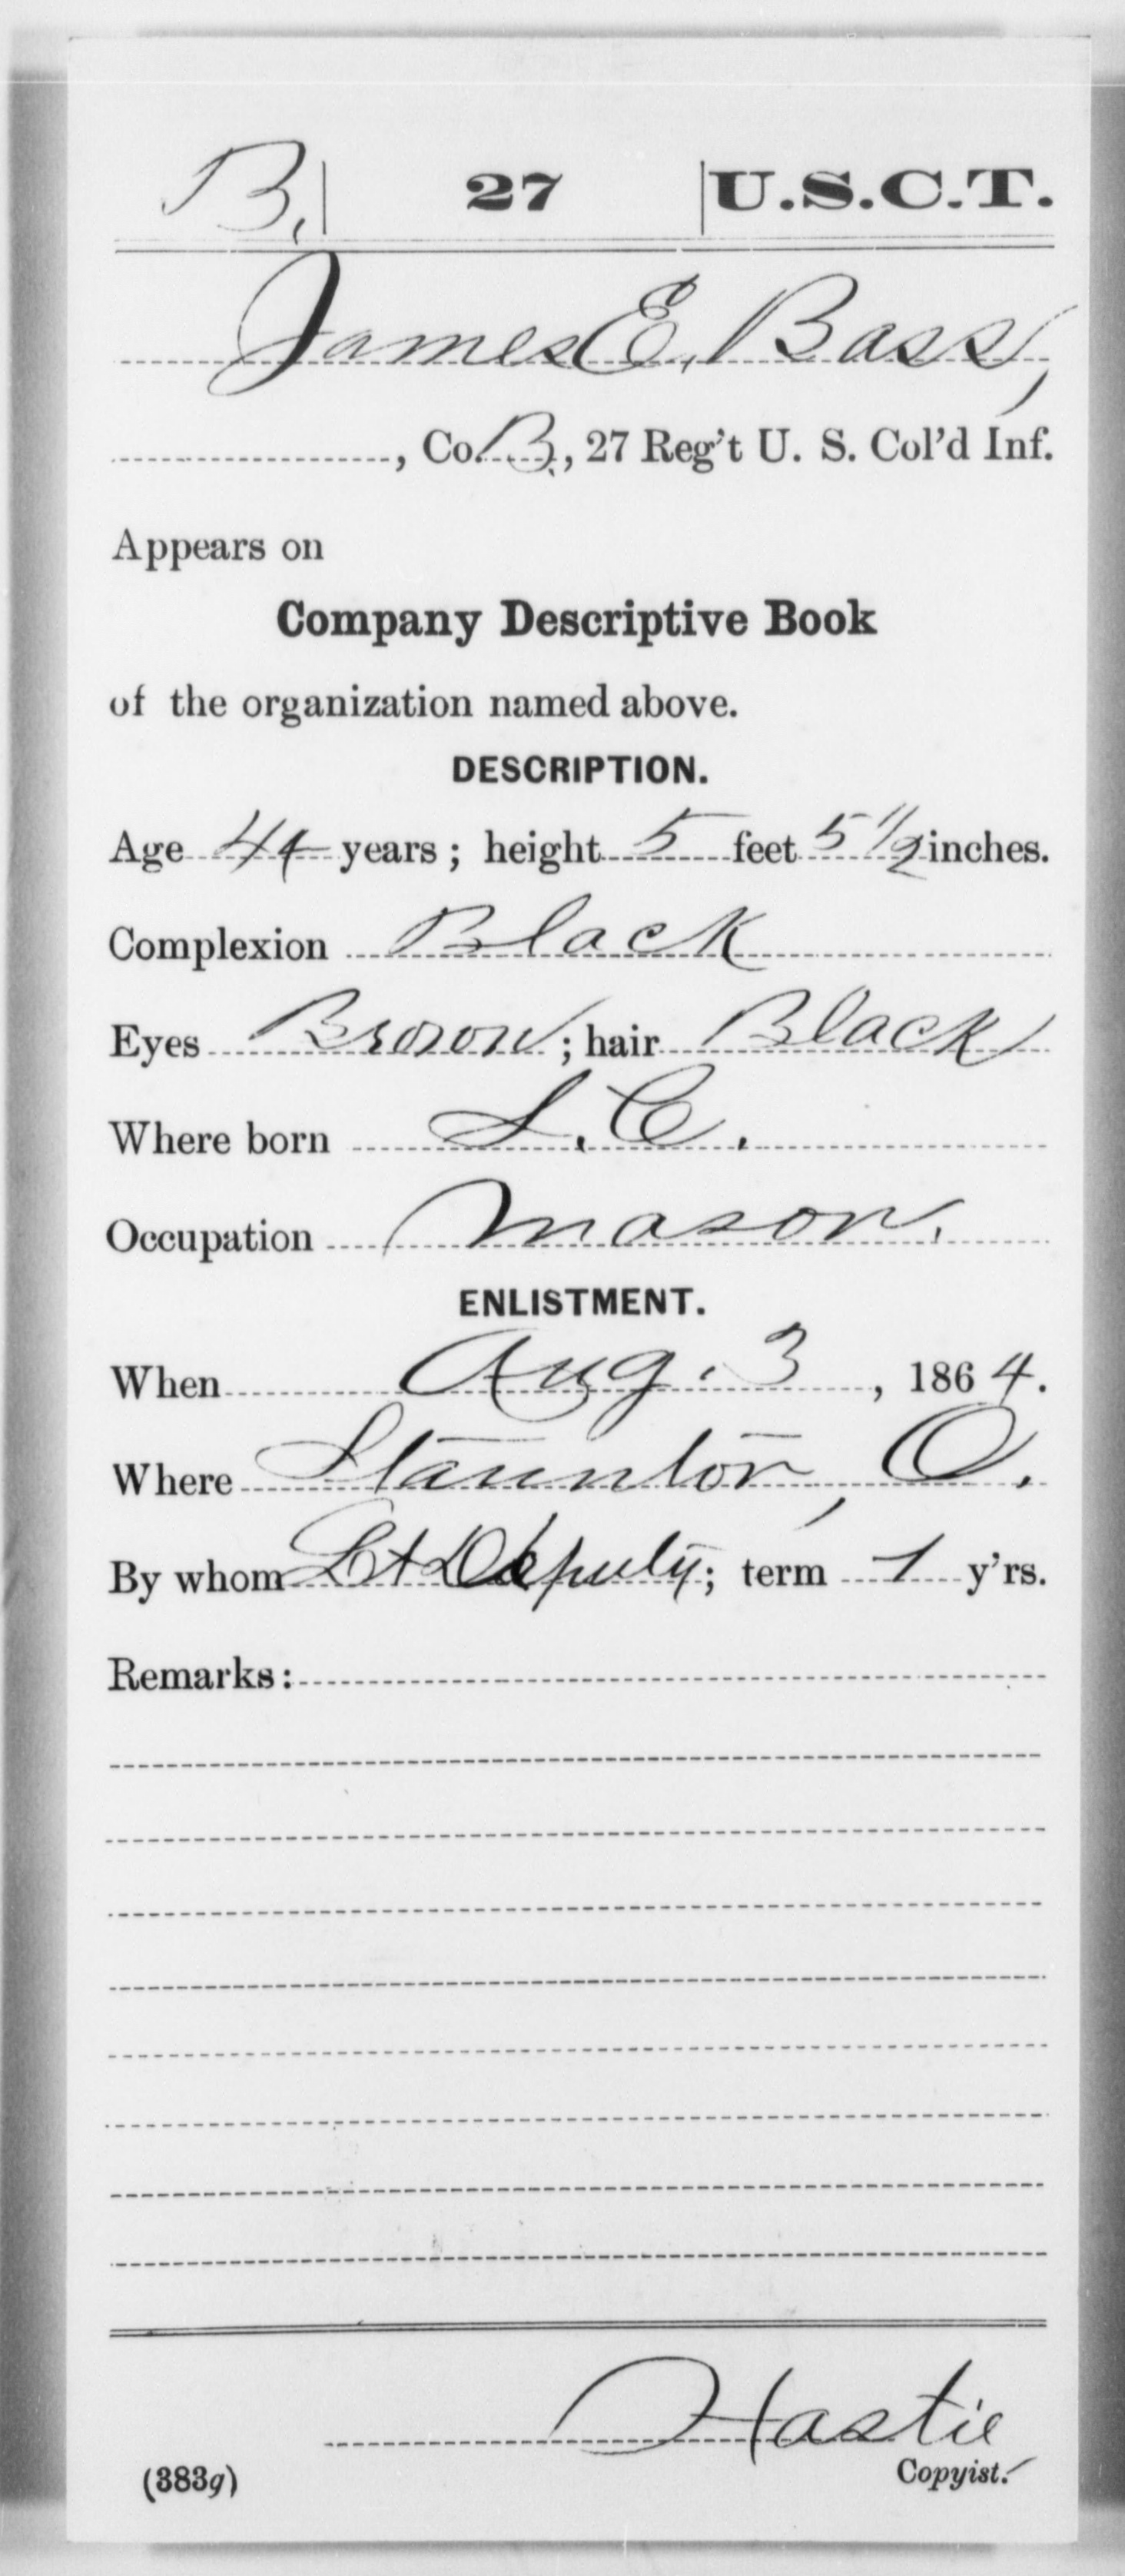 B. 27 U.S.C.T.
James E. Bass,
, Co. B., 27 Reg't U. S. Col'd Inf.
Appears on
Company Descriptive Book
of the organization named above.
DESCRIPTION.
Age 44 years; height 5 feet 5 1/2 inches.
Complexion Black
Eyes Brown; hair Black
Where born S.C.
Occupation Mason.
ENLISTMENT.
When Aug. 3, 1864.
Where Staunton, O.
By whom Lt Deputy; term 1 y'rs.
Remarks:
Hastie
(383g) Copyist.